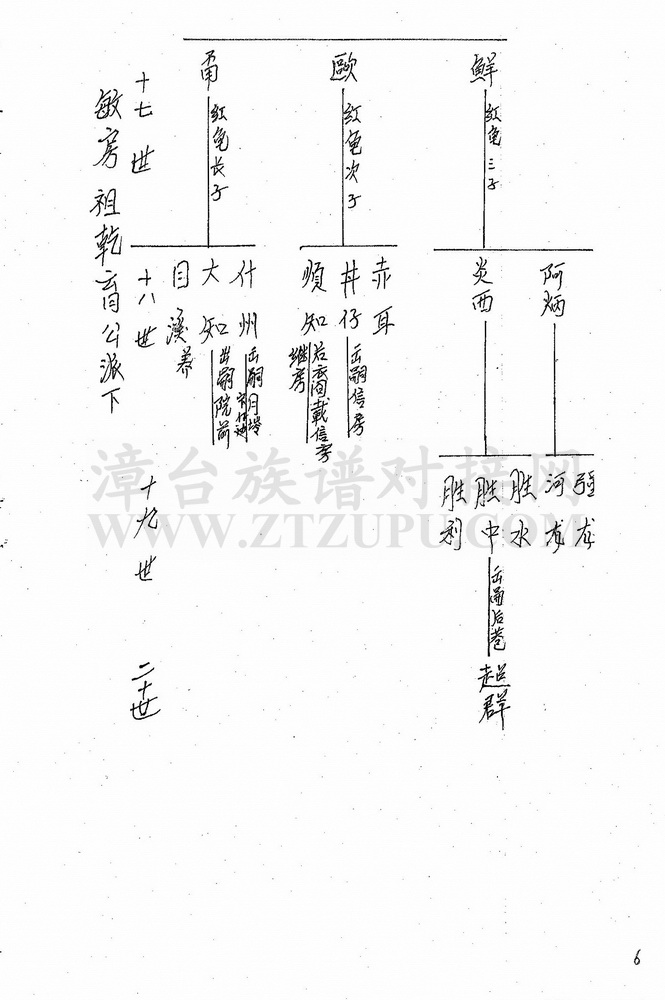 十七世
敏房祖乾育公派下
十八世
十九世
二十世
甬
红龟长子
歐
红龟次子
鮮
红龟三子
目溪养
大知
出嗣院前
什州
順知
继房
井仔
出嗣信房
赤耳
炎西
阿炳
胜利
胜中
出嗣后巷
胜水
河龙
强龙
超群
漳台族谱对接网
WWW.ZTZUPU.COM
6